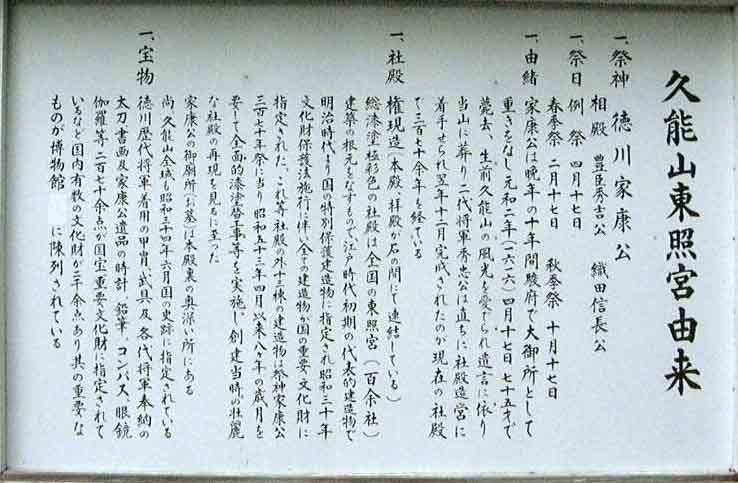 久能山東照宮由来
一、祭神 徳川家康公
相殿 豊臣秀吉公 織田信長公
一、祭日 例祭 四月十七日
春季祭 二月十七日 秋季祭 十月十七日
一、由緒 家康公は晩年の十年間駿府で大御所として
重きをなし元和二年(一六一六)四月十七日七十五才で
薨去、生前久能山の風光を愛でられ遺言に依り
当山に葬り二代将軍秀忠公は直ちに社殿造営に
着手せられ翌年十二月完成されたのが現在の社殿
で三百七十余年を経ている
一、社殿 権現造(本殿、拝殿が石の間にて連結している)
総漆塗極彩色の社殿は全国の東照宮(百余社)
建築の根元をなすもので江戸時代初期の代表的建造物で
明治時代より国の特別保護建造物に指定され昭和三十年
文化財保護法施行に伴い全ての建造物が国の重要文化財に
指定された、これ等社殿の外十三棟の建造物は祭神家康公
三百七十年祭に当り昭和五十三年四月以来八ヶ年の歳月を
要して全面的漆塗替工事等を実施し、創建当時の壮麗
な社殿の再現を見るに至った
家康公の御廟所(お墓)は本殿裏の奥深い所にある
尚、久能山全域も昭和三十四年六月国の史跡に指定されている
一、宝物 徳川歴代将軍着用の甲冑、武具及各代将軍奉納の
太刀書画及家康公遺品の時計 鉛筆、コンパス、眼鏡
伽羅等二百七十余点が国宝重要文化財に指定されて
いるなど国内有数の文化財が二千余点あり其の重要な
ものが博物館 に陳列されている